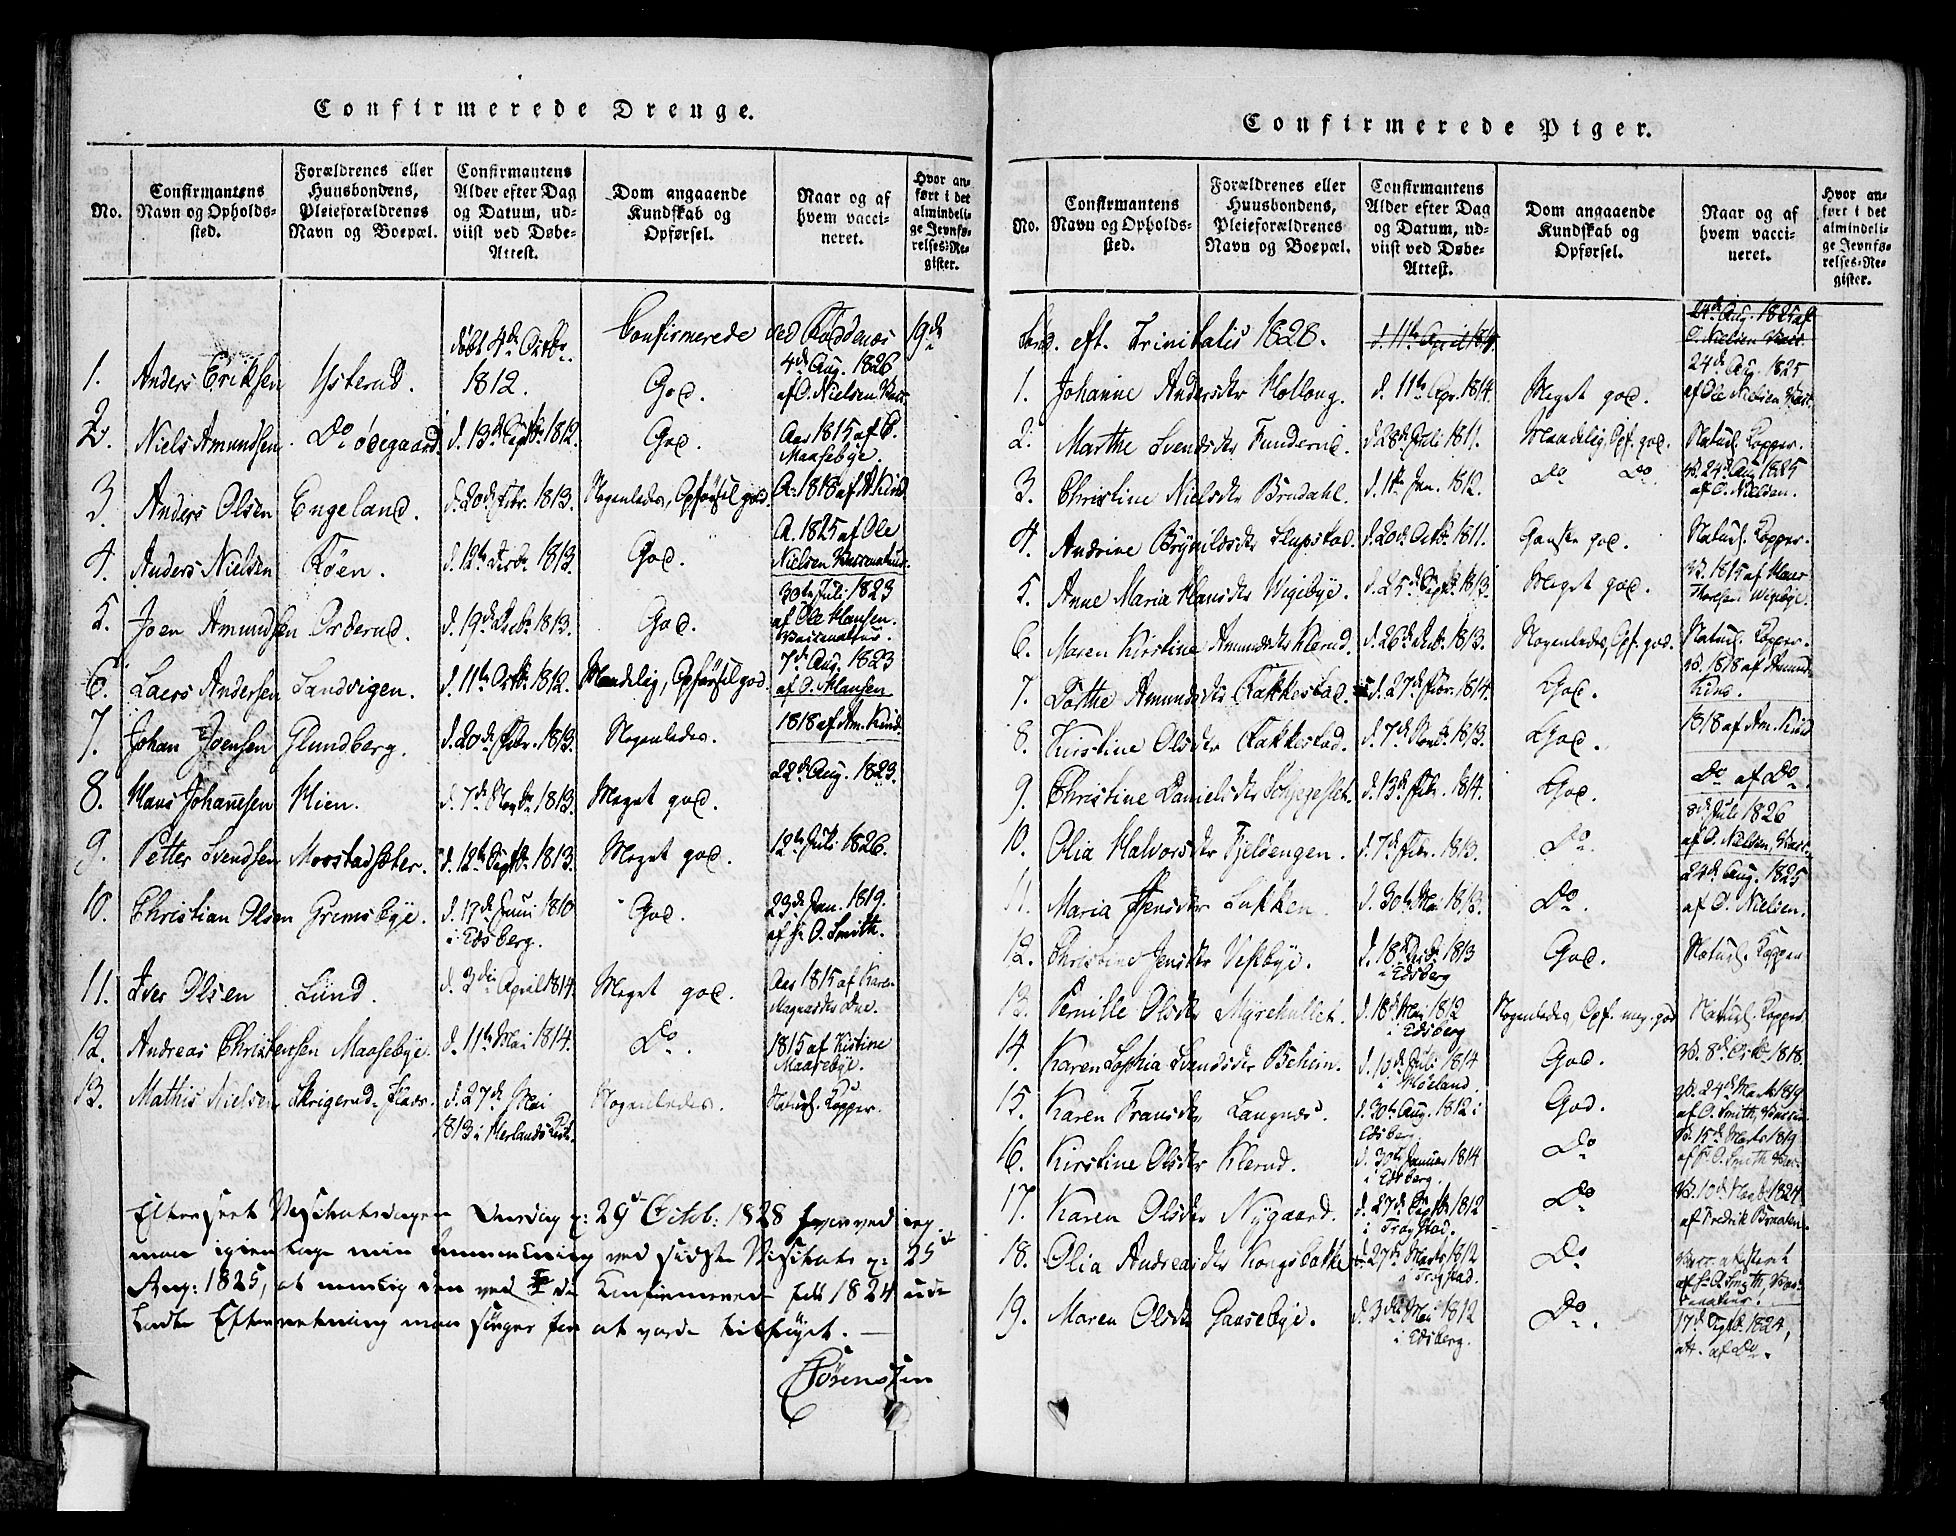 Confirmerede Drenge.
No.
Confirmantens Navn og Opholdssted.
Forældrenes eller Huusbondens, Pleieforældrenes Navn og Boepæl.
Confirmantens Alder efter Dag og Datum, udviist ved Døbe-Attest.
Dom angaaende Kundskab og Opførsel.
Naar og af hvem vaccineret.
Hvor anført i det almindelige Jevnførelses-Register.
Confirmerede ved Fladdenæs 19de
1. Anders Eriksen Ysterud. døbt 4de Octbr. 1812. God. 4de Aug. 1826 af O. Nielsen Vacc.
2. Niels Amundsen Do Ødegaard. d. 13de Septbr. 1812. God. Aar 1815 af C. Maasebye.
3. Anders Olsen Engeland. d. 20de Febr. 1813. Nogenledes, Opførsel god. A. 1818 af A. Kind
4. Anders Nielsen Røen. d. 12te Decbr. 1813. God. A. 1825 af Ole Nielsen Vaccinateur.
5. Joen Amundsen Orderud. d. 19de Decbr. 1813. God. 30te Juli 1823 af Ole Hansen. Vaccinateur.
6. Laers Andersen Sandvigen. d. 11te Octbr. 1812. Maadelig, Opførsel god. 7de Aug. 1823 af O. Hansen
7. Johan Joensen Glundberg. d. 20de Febr. 1813. Nogenledes. 1818 af Am. Kind
8. Hans Johannesen Hien. d. 7de Novbr. 1813. Meget god. 22de Aug. 1823.
9. Petter Svendsen Moostadsæter. d. 12te Septbr. 1813. Meget god. 12te Juli 1826.
10. Christian Olsen Gremsbye. d. 17de Juni 1810 i Edsberg. God. 23de Jan. 1819. af Hr. O. Smith.
11. Iver Olsen Lund. d. 3die April 1814. Meget god. Aar 1815 af Karen Magnusdtr Due.
12. Andreas Christensen Maasebye. d. 11te Mai 1814. Do. 1815 af Kistine Maasebye.
13. Mathis Nielsen Skrigerud-Flaer. d. 27de Mai 1813 i Herlands Kirke. Nogenledes. Naturl. Kopper.
Efterseet Visitatsdagen Onsdag d: 29de Octob: 1828 hvorved jeg
maa igien tage min Anmærkning ved sidste Visitats d: 25de
Aug: 1825, at nemlig den ved de Confirmerede fra 1824 ude-
ladte Efterretning maa sørges for at vorde tilføyet. —
Sörenssen
Confirmerede Piger.
No.
Confirmantens Navn og Opholdssted.
Forældrenes eller Huusbondens, Pleieforældrenes Navn og Boepæl.
Confirmantens Alder efter Dag og Datum, udviist ved Døbe-Attest.
Dom angaaende Kundskab og Opførsel.
Naar og af hvem vaccineret.
Hvor anført i det almindelige Jevnførelses-Register.
Sønd. eft. Trinitatis 1828. d. 11te April 1814. 24de Aug. 1825 af O. Nielsen Vacc.
1. Johanne Andersdtr Hollong. d. 11te Apr. 1814. Meget god. 24de Aug. 1825 af Ole Nielsen Vacc.
2. Marthe Svendsdtr Funderud. d. 28de Juli 1811. Maadelig, Opf. god. Naturl. Kopper.
3. Christine Nielsdtr Brudahl. d. 1ste Jan. 1812. Do Do. 24de Aug. 1825 af O. Nielsen.
4. Andrine Brynildsdtr Slupstad. d. 20de Octbr. 1811. Ganske god. Naturl. Kopper.
5. Anne Maria Hansdtr Wigebye. d. 25de Septbr. 1813. Meget god. 1815 af Hans Thoresen Wigebye.
6. Maren Kirstine Amundsdtr Klerud. d. 26de Decbr. 1813. Nogenledes, Opf. god. Naturl. Kopper.
7. Dorthe Amundsdtr Takkestad. d. 27de Febr. 1814. God. 1818 af Amund Kind.
8. Kirstine Olsdtr Takkestad. d. 7de Novbr. 1813. God. 1818 af Am. Kind
9. Christine Danielsdtr d. 13de Febr. 1814. God. Do af Do.
10. Olia Halvorsdtr Fjeldengen. d. 7de Febr. 1813. Do. 8de Juli 1826 af O. Nielsen, Vacc.
11. Maria Jensdtr Lukken. d. 30te Mai 1813. Do. 24de Aug. 1825 af O. Nielsen.
12. Christine Jensdtr Vestbye. d. 18de Decbr. 1813 i Edsberg God. Naturl. Kopper
13. Pernille Olsdtr Myrehullet. d. 18de Mai 1812 i Edsberg Nogenledes, Opf. meg. god Naturl. Kopper
14. Karen Sophia Svendsdtr Beheim. d. 10de Juli 1814 i Høeland. God. 8de Octbr. 1818.
15. Karen Fransdtr Langnæs. d. 30te Aug. 1812 i Edsberg God. 24de Marts 1819 af O. Smith, Vaccin
16. Kirstine Olsdtr Klerud. d. 30te Januar 1814 i Edsberg. Do 15de Marts 1819 af Hr. O. Smith Vac-
17. Karen Olsdtr Nygaard. d. 27de Septbr. 1812 i Trøgstad. Do 10de Septbr. 1824 af Fredrik Braaten.
18. Olia Andreasdtr Kongsbakke 27de Marts 1812 i Trøgstad. Do Vacc. attesteret af Hr. O. Smith, Vaccinateur.
19. Maren Olsdtr Gaasebye. d. 3die Mai 1812 i Edsberg. Do. 17de Septbr. 1824, att. af Do.